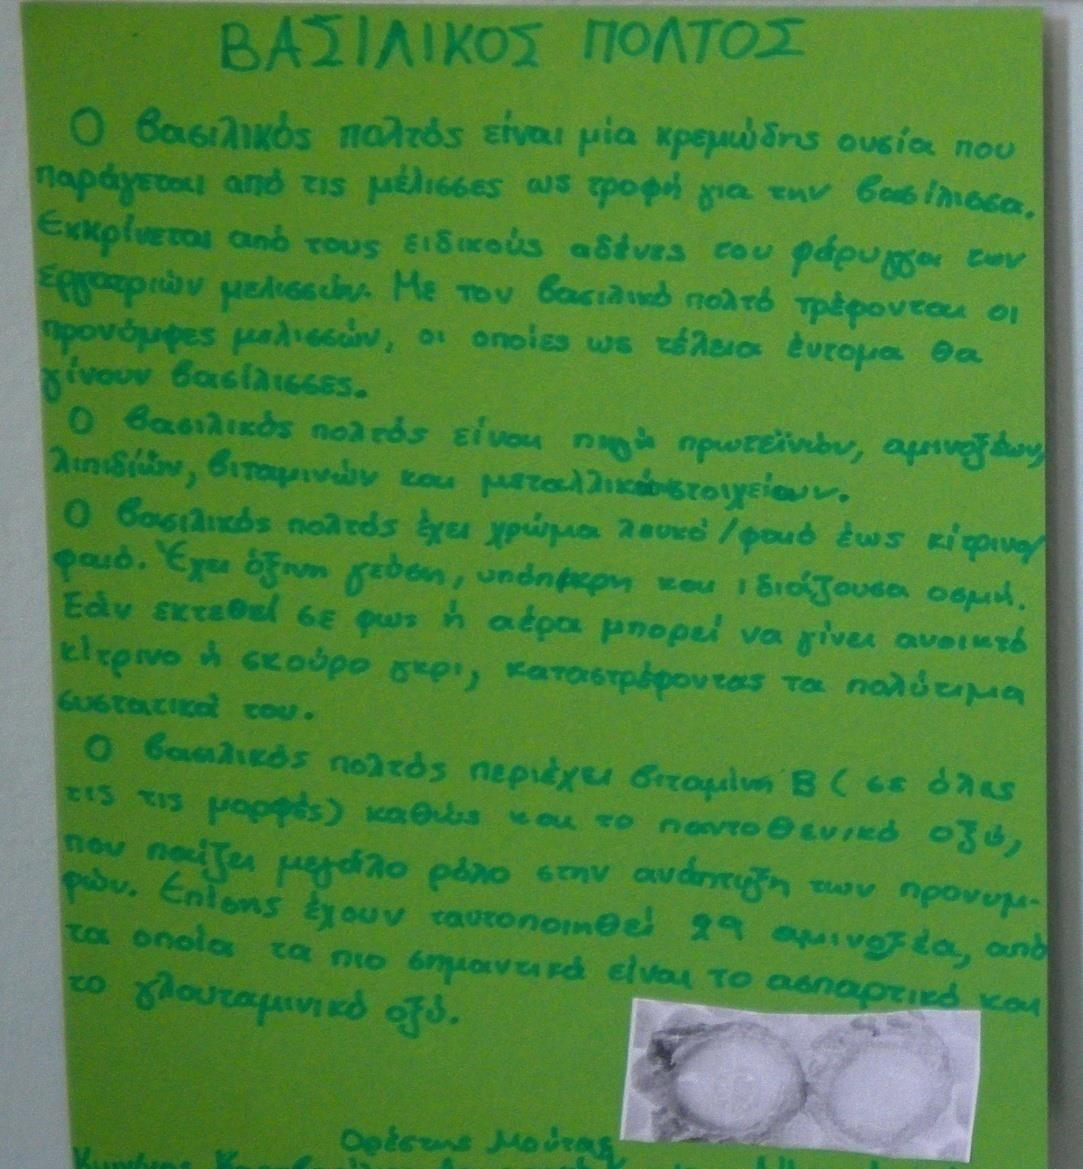 ΒΑΣΙΛΙΚΟΣ ΠΟΛΤΟΣ
Ο βασιλικός πολτός είναι μία κρεμώδης ουσία που
παράγεται από τις μέλισσες ως τροφή για την βασίλισσα.
Εκκρίνεται από τους ειδικούς αδένες του φάρυγγα των
εργατριών μελισσών. Με τον βασιλικό πολτό τρέφονται οι
προνύμφες μελισσών, οι οποίες ως τέλεια έντομα θα
γίνουν βασίλισσες.
Ο βασιλικός πολτός είναι πηγή πρωτεϊνών, αμινοξέων,
λιπιδίων, βιταμινών και μεταλλικών στοιχείων.
Ο βασιλικός πολτός έχει χρώμα λευκό/φαιό έως κίτρινο/
φαιό. Έχει όξινη γεύση, υπόπικρη και ιδιάζουσα οσμή.
Εάν εκτεθεί σε φως ή αέρα μπορεί να γίνει ανοικτό
κίτρινο ή σκούρο γκρι, καταστρέφοντας τα πολύτιμα
συστατικά του.
Ο βασιλικός πολτός περιέχει βιταμίνη Β (σε όλες
τις τις μορφές) καθώς και το παντοθενικό οξύ,
που παίζει μεγάλο ρόλο στην ανάπτυξη των προνυμ-
φών. Επίσης έχουν ταυτοποιηθεί 29 αμινοξέα, από
τα οποία τα πιο σημαντικά είναι το ασπαρτικό και
το γλουταμινικό οξύ.
Ορέστης Μούτας